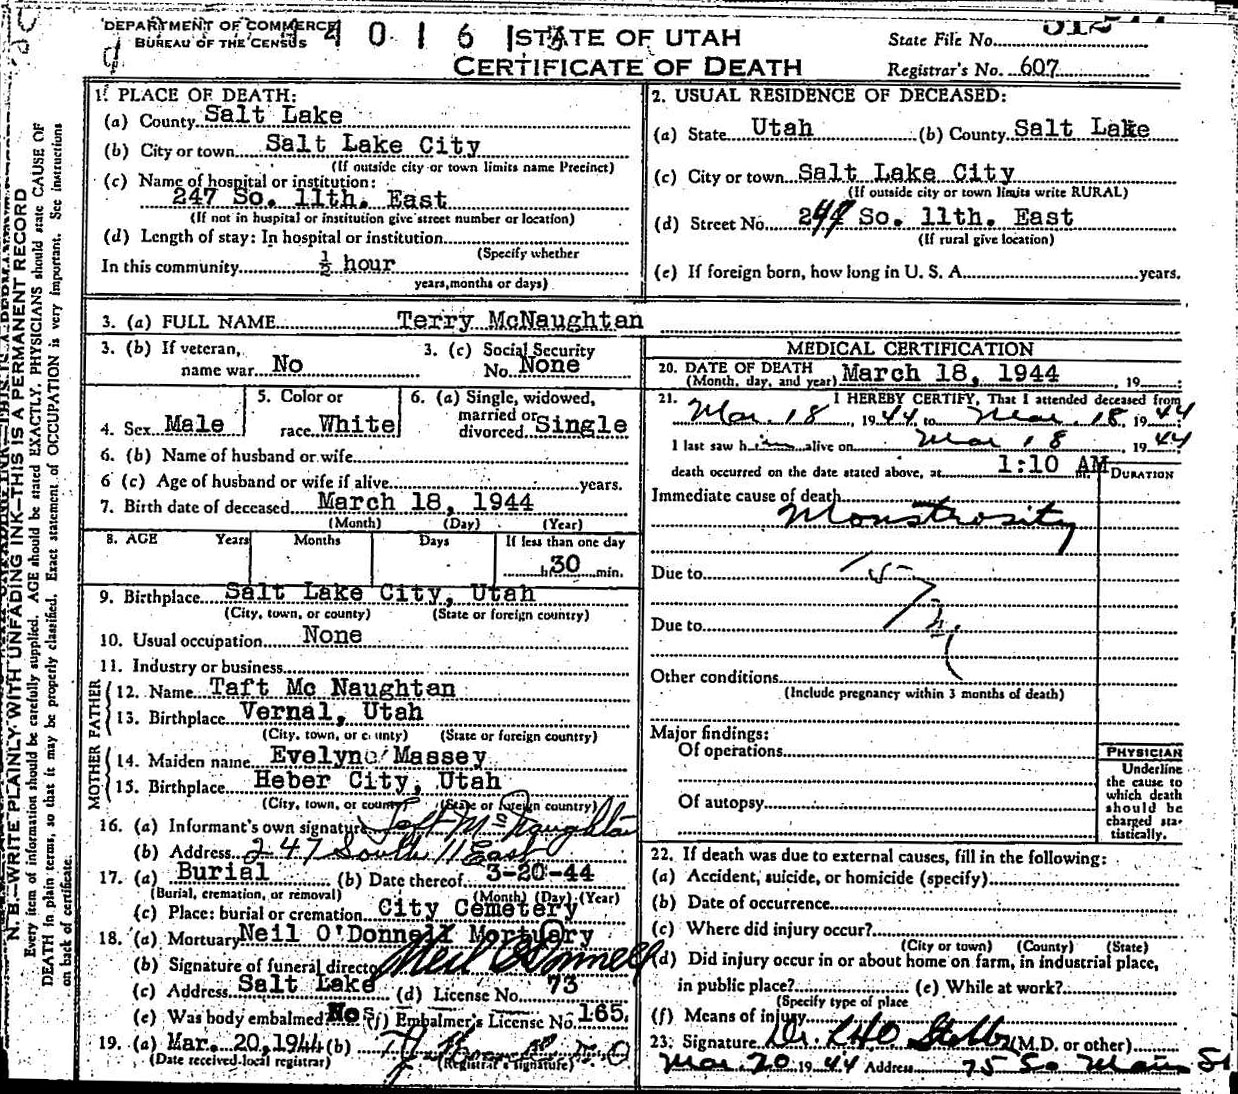 DEPARTMENT OF COMMERCE
BUREAU OF THE CENSUS
4 0 1 6
STATE OF UTAH
CERTIFICATE OF DEATH
State File No.
Registrar's No. 607
N. B.—WRITE PLAINLY WITH UNFADING INK—THIS IS A PERMANENT RECORD
Every item of information should be carefully supplied. AGE should be stated EXACTLY. PHYSICIANS should state CAUSE OF
DEATH in plain terms, so that it may be properly classified. Exact statement of OCCUPATION is very important. See instructions
on back of certificate.
1. PLACE OF DEATH:
(a) County Salt Lake
(b) City or town Salt Lake City
(If outside city or town limits name Precinct)
(c) Name of hospital or institution:
247 So. 11th. East
(If not in hospital or institution give street number or location)
(d) Length of stay: In hospital or institution
(Specify whether
In this community ½ hour
years, months or days)
2. USUAL RESIDENCE OF DECEASED:
(a) State Utah (b) County Salt Lake
(c) City or town Salt Lake City
(If outside city or town limits write RURAL)
(d) Street No. 247 So. 11th. East
(If rural give location)
(e) If foreign born, how long in U. S. A. years.
3. (a) FULL NAME Terry McNaughtan
3. (b) If veteran, name war No
3. (c) Social Security No. None
4. Sex Male
5. Color or race White
6. (a) Single, widowed, married or divorced Single
6. (b) Name of husband or wife
6 (c) Age of husband or wife if alive years.
7. Birth date of deceased March 18, 1944
(Month) (Day) (Year)
8. AGE Years Months Days If less than one day
h. 30 min.
9. Birthplace Salt Lake City, Utah
(City, town, or county) (State or foreign country)
10. Usual occupation None
11. Industry or business
FATHER
12. Name Taft Mc Naughtan
13. Birthplace Vernal, Utah
(City, town, or county) (State or foreign country)
MOTHER
14. Maiden name Evelyne Massey
15. Birthplace Heber City, Utah
(City, town, or county) (State or foreign country)
16. (a) Informant's own signature Taft McNaughtan
(b) Address 247 South 11 East
17. (a) Burial (b) Date thereof 3-20-44
(Burial, cremation, or removal) (Month) (Day) (Year)
(c) Place: burial or cremation City Cemetery
18. (a) Mortuary Neil O'Donnell Mortuary
(b) Signature of funeral director Neil O'Donnell
(c) Address Salt Lake (d) License No. 73
(e) Was body embalmed No (f) Embalmer's License No. 165.
19. (a) Mar. 20, 1944 (b)
(Date received local registrar) (Registrar's signature)
MEDICAL CERTIFICATION
20. DATE OF DEATH
(Month, day, and year) March 18, 1944, 19
21. I HEREBY CERTIFY, That I attended deceased from
Mar 18, 1944 to Mar 18, 1944
I last saw him alive on Mar 18 1944
death occurred on the date stated above, at 1:10 AM m. DURATION
Immediate cause of death
Monstrosity
Due to
157
Due to
Other conditions
(Include pregnancy within 3 months of death)
Major findings:
Of operations
Of autopsy
PHYSICIAN
Underline
the cause to
which death
should be
charged sta-
tistically.
22. If death was due to external causes, fill in the following:
(a) Accident, suicide, or homicide (specify)
(b) Date of occurrence
(c) Where did injury occur?
(City or town) (County) (State)
(d) Did injury occur in or about home on farm, in industrial place,
in public place? (e) While at work?
(Specify type of place
(f) Means of injury
23. Signature Dr. (M.D. or other)
Mar. 20 1944 Address 75 So Main St